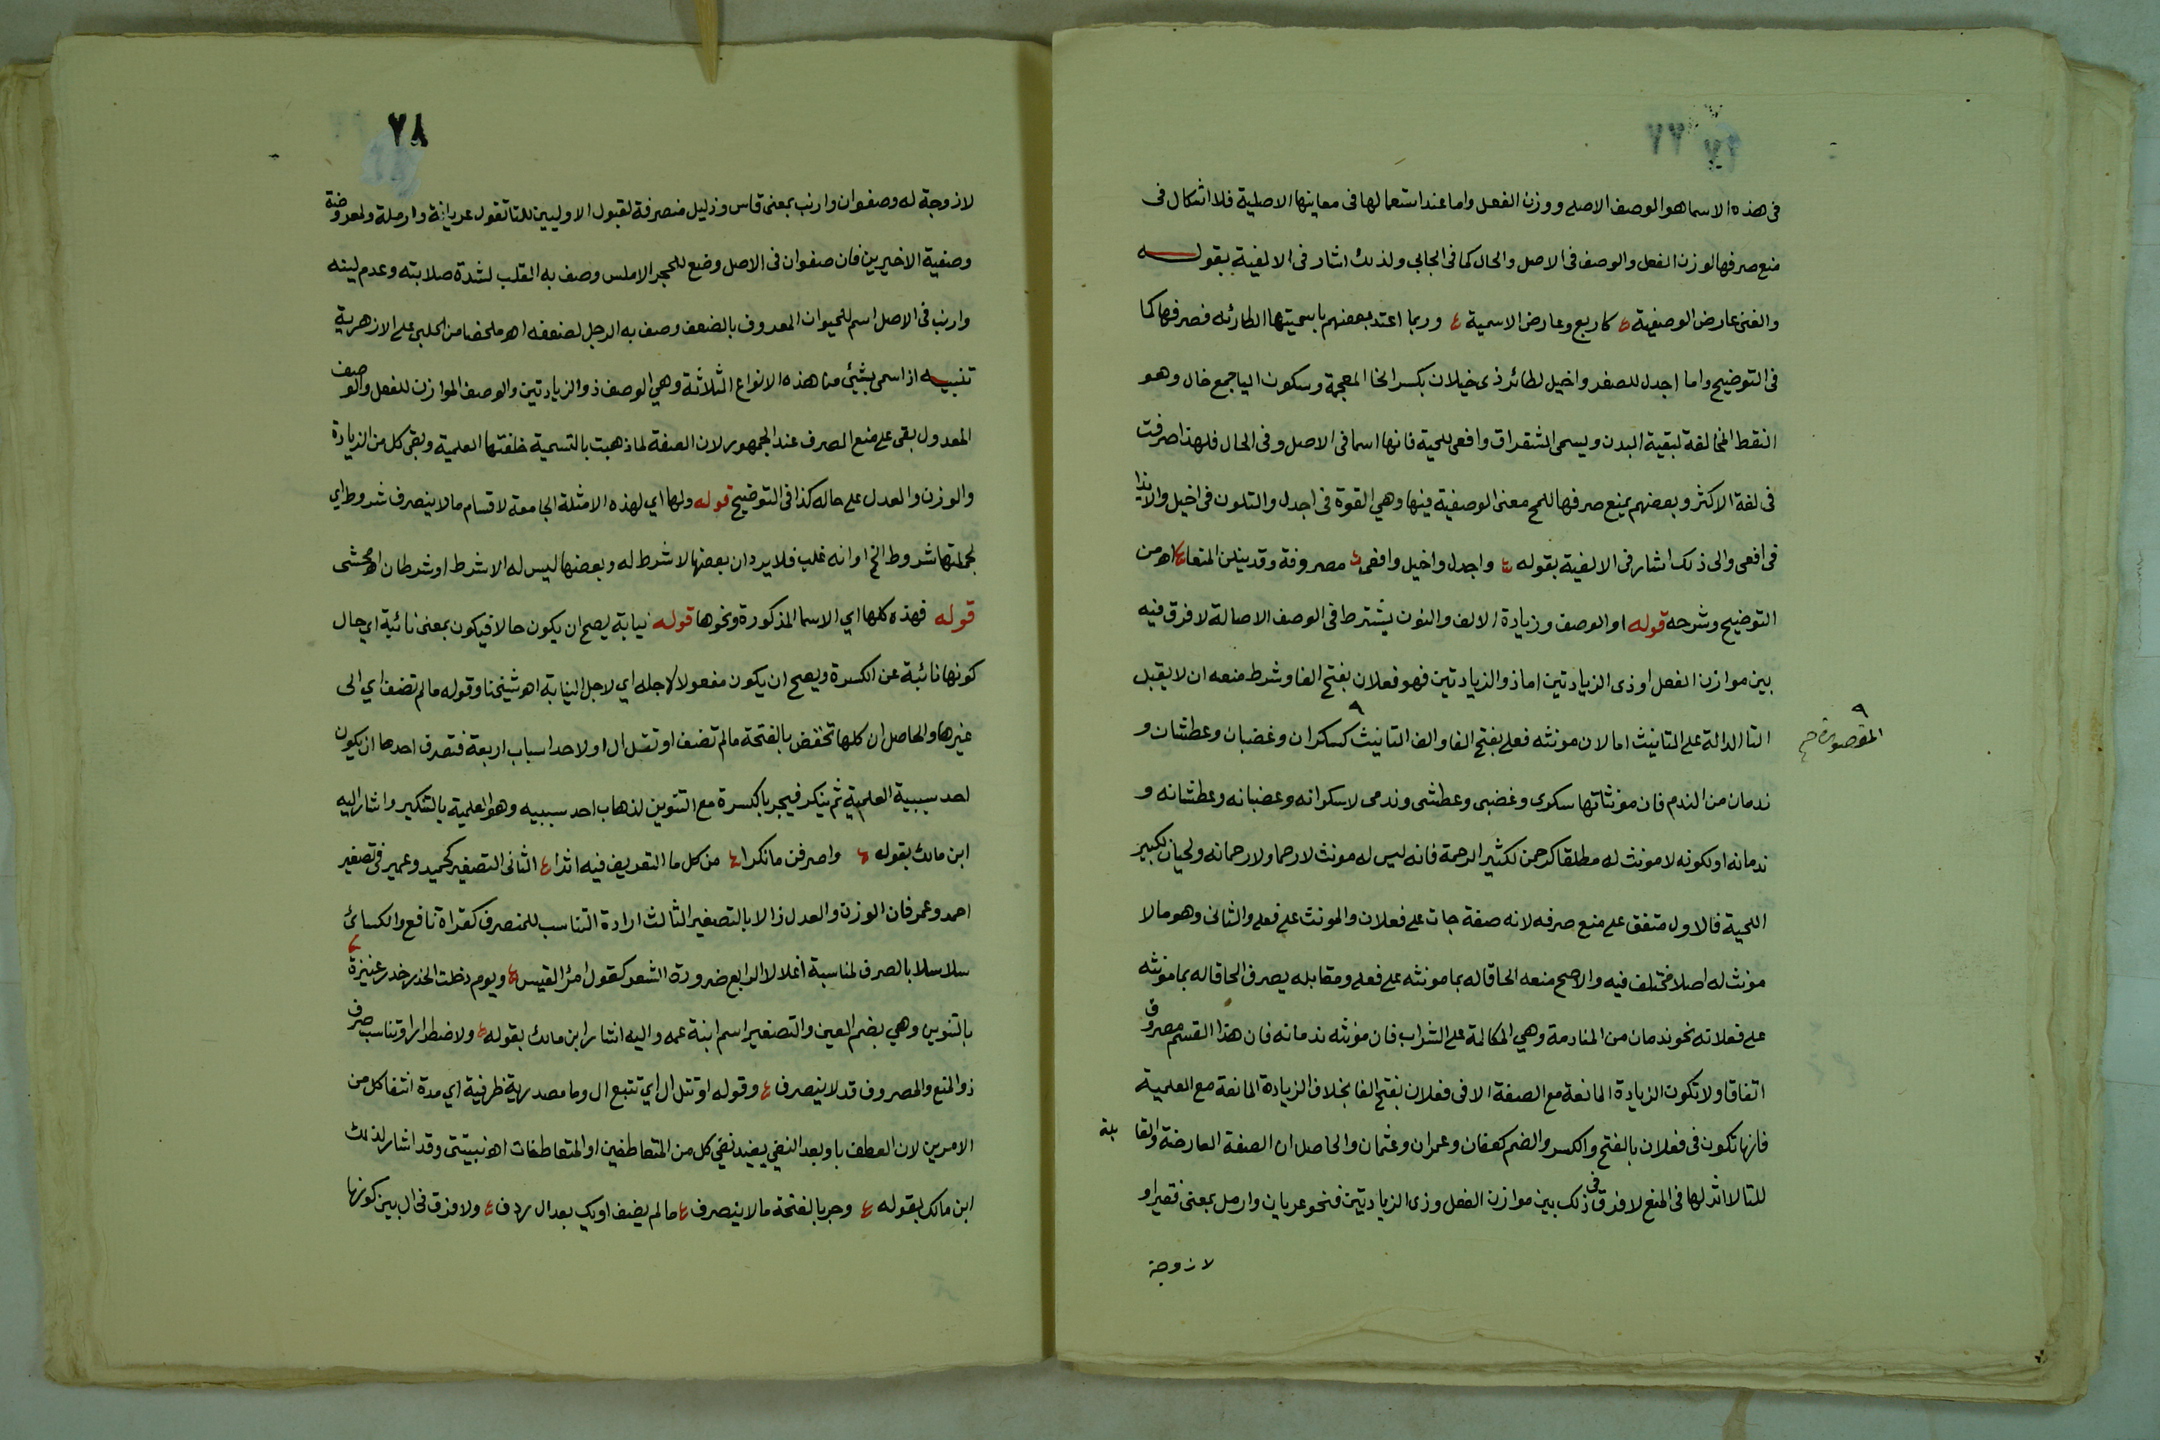 في هذه الاسما هو الوصف الاصلي ووزن الفعل واما عند استعمالها في معاينها الاصلية فلا اشكال في
منع صرفها لوزن الفعل والوصف في الاصل والحال كما في الجابي ولذلك اشار في الالفية بقوله
والغي عارض الوصفية ع كاربع وعارض الاسمية ع وربما اعتد بعضهم باسميتها الطارئه فصرفها كما
في التوضيح واما اجدل للصقر واخيل لطائر ذي خيلان بكسر الخا المعجمة وسكون اليا جمع خال وهو
النقط المخالفة لبقية البدن ويسمى الشقراق وافعى للحية فانها اسما في الاصل وفي الحال فلهذا صرفت
في لغة الاكثر وبعضهم يمنع صرفها للمح معنى الوصفية فيها وهي القوة في اجدل والتلون في اخيل والايذا
في افعى والى ذلك اشار في الالفية بقوله ع واجدل واخيل وافعى ع مصروفة وقد ينلن المنعا ع اه من
التوضيح وشرحه قوله او الوصف وزيادة الالف والنون يشترط في الوصف الاصالة لا فرق فيه
بين موازن الفعل او ذي الزيادتين اما ذو الزيادتين فهو فعلان بفتح الفا وشرط منعه ان لا يقبل
التا الدالة على التانيث اما لان مونثه فعلى بفتح الفا والف التانيث كسكران وغضبان وعطشان و
المقصورة صح
ندمان من الندم فان مونثاتها سكرى وغضبى وعطشى وندمى لا سكرانه وغضبانه وعطشانه و
ندمانه او لكونه لا مونث له مطلقا كرحمن لكثير الرحمة فانه ليس له مونث لا رحما ولا رحمانه ولحيان لكبير
اللحية فالاول متفق على منع صرفه لانه صفة جات على فعلان والمونث على فعلى والثاني وهو ما لا
مونث له اصلا مختلف فيه والاصح منعه الحاقا له بما مونثه على فعلى ومقابله يصرف الحاقا له بما مونثه
على فعلانه نحو ندمان من المنادمة وهي المكالمة على الشراب فان مونثه ندمانه فان هذا القسم مصروف
اتفاقا ولا تكون الزيادة المانعة مع الصفة الا في فعلان بفتح الفا بخلاف الزيادة المانعة مع العلمية
فانها تكون في فعلان بالفتح والكسر والضم كعفان وعمران وعثمان والحاصل ان الصفة العارضة والقابلة
للتا لا اثر لها في المنع لا فرق في ذلك بين موازن الفعل وذي الزيادتين فنحو عريان وارمل بمعنى فقير او
لا زوجة
٧٨
لا زوجة له وصفوان وارنب بمعنى قاس وذليل منصرفة لقبول الاوليين للتا تقول عريانة وارملة ولعروضة
وصفية الاخيرين فان صفوان في الاصل وضع للحجر الاملس وصف به القلب لشدة صلابته وعدم لينه
وارنب في الاصل اسم للحيوان المعروف بالضعف وصف به الرجل لضعفه اه ملخصا من الحلبي على الازهرية
تنبيه اذا سمى بشيئ من هذه الانواع الثلاثة وهي الوصف ذو الزيادتين والوصف الموازن للفعل والوصف
المعدول بقى على منع الصرف عند الجمهور لان الصفة لما ذهبت بالتسمية خلفتها العلمية وبقى كل من الزيادة
والوزن والعدل على حاله كذا في التوضيح قوله ولها اي لهذه الامثلة الجامعة لاقسام ما لا ينصرف شروط اي
لجملتها شروط الخ او انه غلب فلا يرد ان بعضها لا شرط له وبعضها ليس له الا شرط او شرطان اه محشى
قوله فهذه كلها اي الاسما المذكورة ونحوها قوله نيابة يصح ان يكون حالا فيكون بمعنى نائبة اي حال
كونها نائبة عن الكسرة ويصح ان يكون مفعولا لاجله اي لاجل النيابة اه شيخنا وقوله ما لم تضف اي الى
غيرها والحاصل ان كلها تخفض بالفتحة ما لم تضف او تتل ال او لاحد اسباب اربعة فتصرف احدها ان يكون
احد سببية العلمية ثم ينكر فيجر بالكسرة مع التنوين لذهاب احد سببيه وهو العلمية بالتنكير واشار اليه
ابن مالك بقوله ع واصرفن ما نكرا ع من كل ما التعريف فيه اثرا ع الثاني التصغير كحميد وعمير في تصغير
احمد وعمر فان الوزن والعدل زالا بالتصغير الثالث ارادة التناسب للمنصرف كقراة نافع والكسائ
سلاسلا بالصرف لمناسبة اغلالا الرابع ضرورة الشعر كقول امرئ القيس ع ويوم دخلت الخدر خدر عنيزة ع
بالتنوين وهي بضم العين والتصغير اسم ابنة عمه واليه اشار ابن مالك بقوله ع ولاضطرار او تناسب صرف
ذو المنع والمصروف قد لا ينصرف ع وقوله او تتل ال اي تتبع ال وما مصدرية ظرفية اي مدة انتفا كل من
الامرين لان العطف باو بعد النفي يفيد نفي كل من المتعاطفين او المتعاطفات اه نبتيتى وقد اشار لذلك
ابن مالك بقوله ع وجر بالفتحة ما لا ينصرف ع ما لم يضف او يك بعد ال ردف ع ولا فرق في ال بين كونها